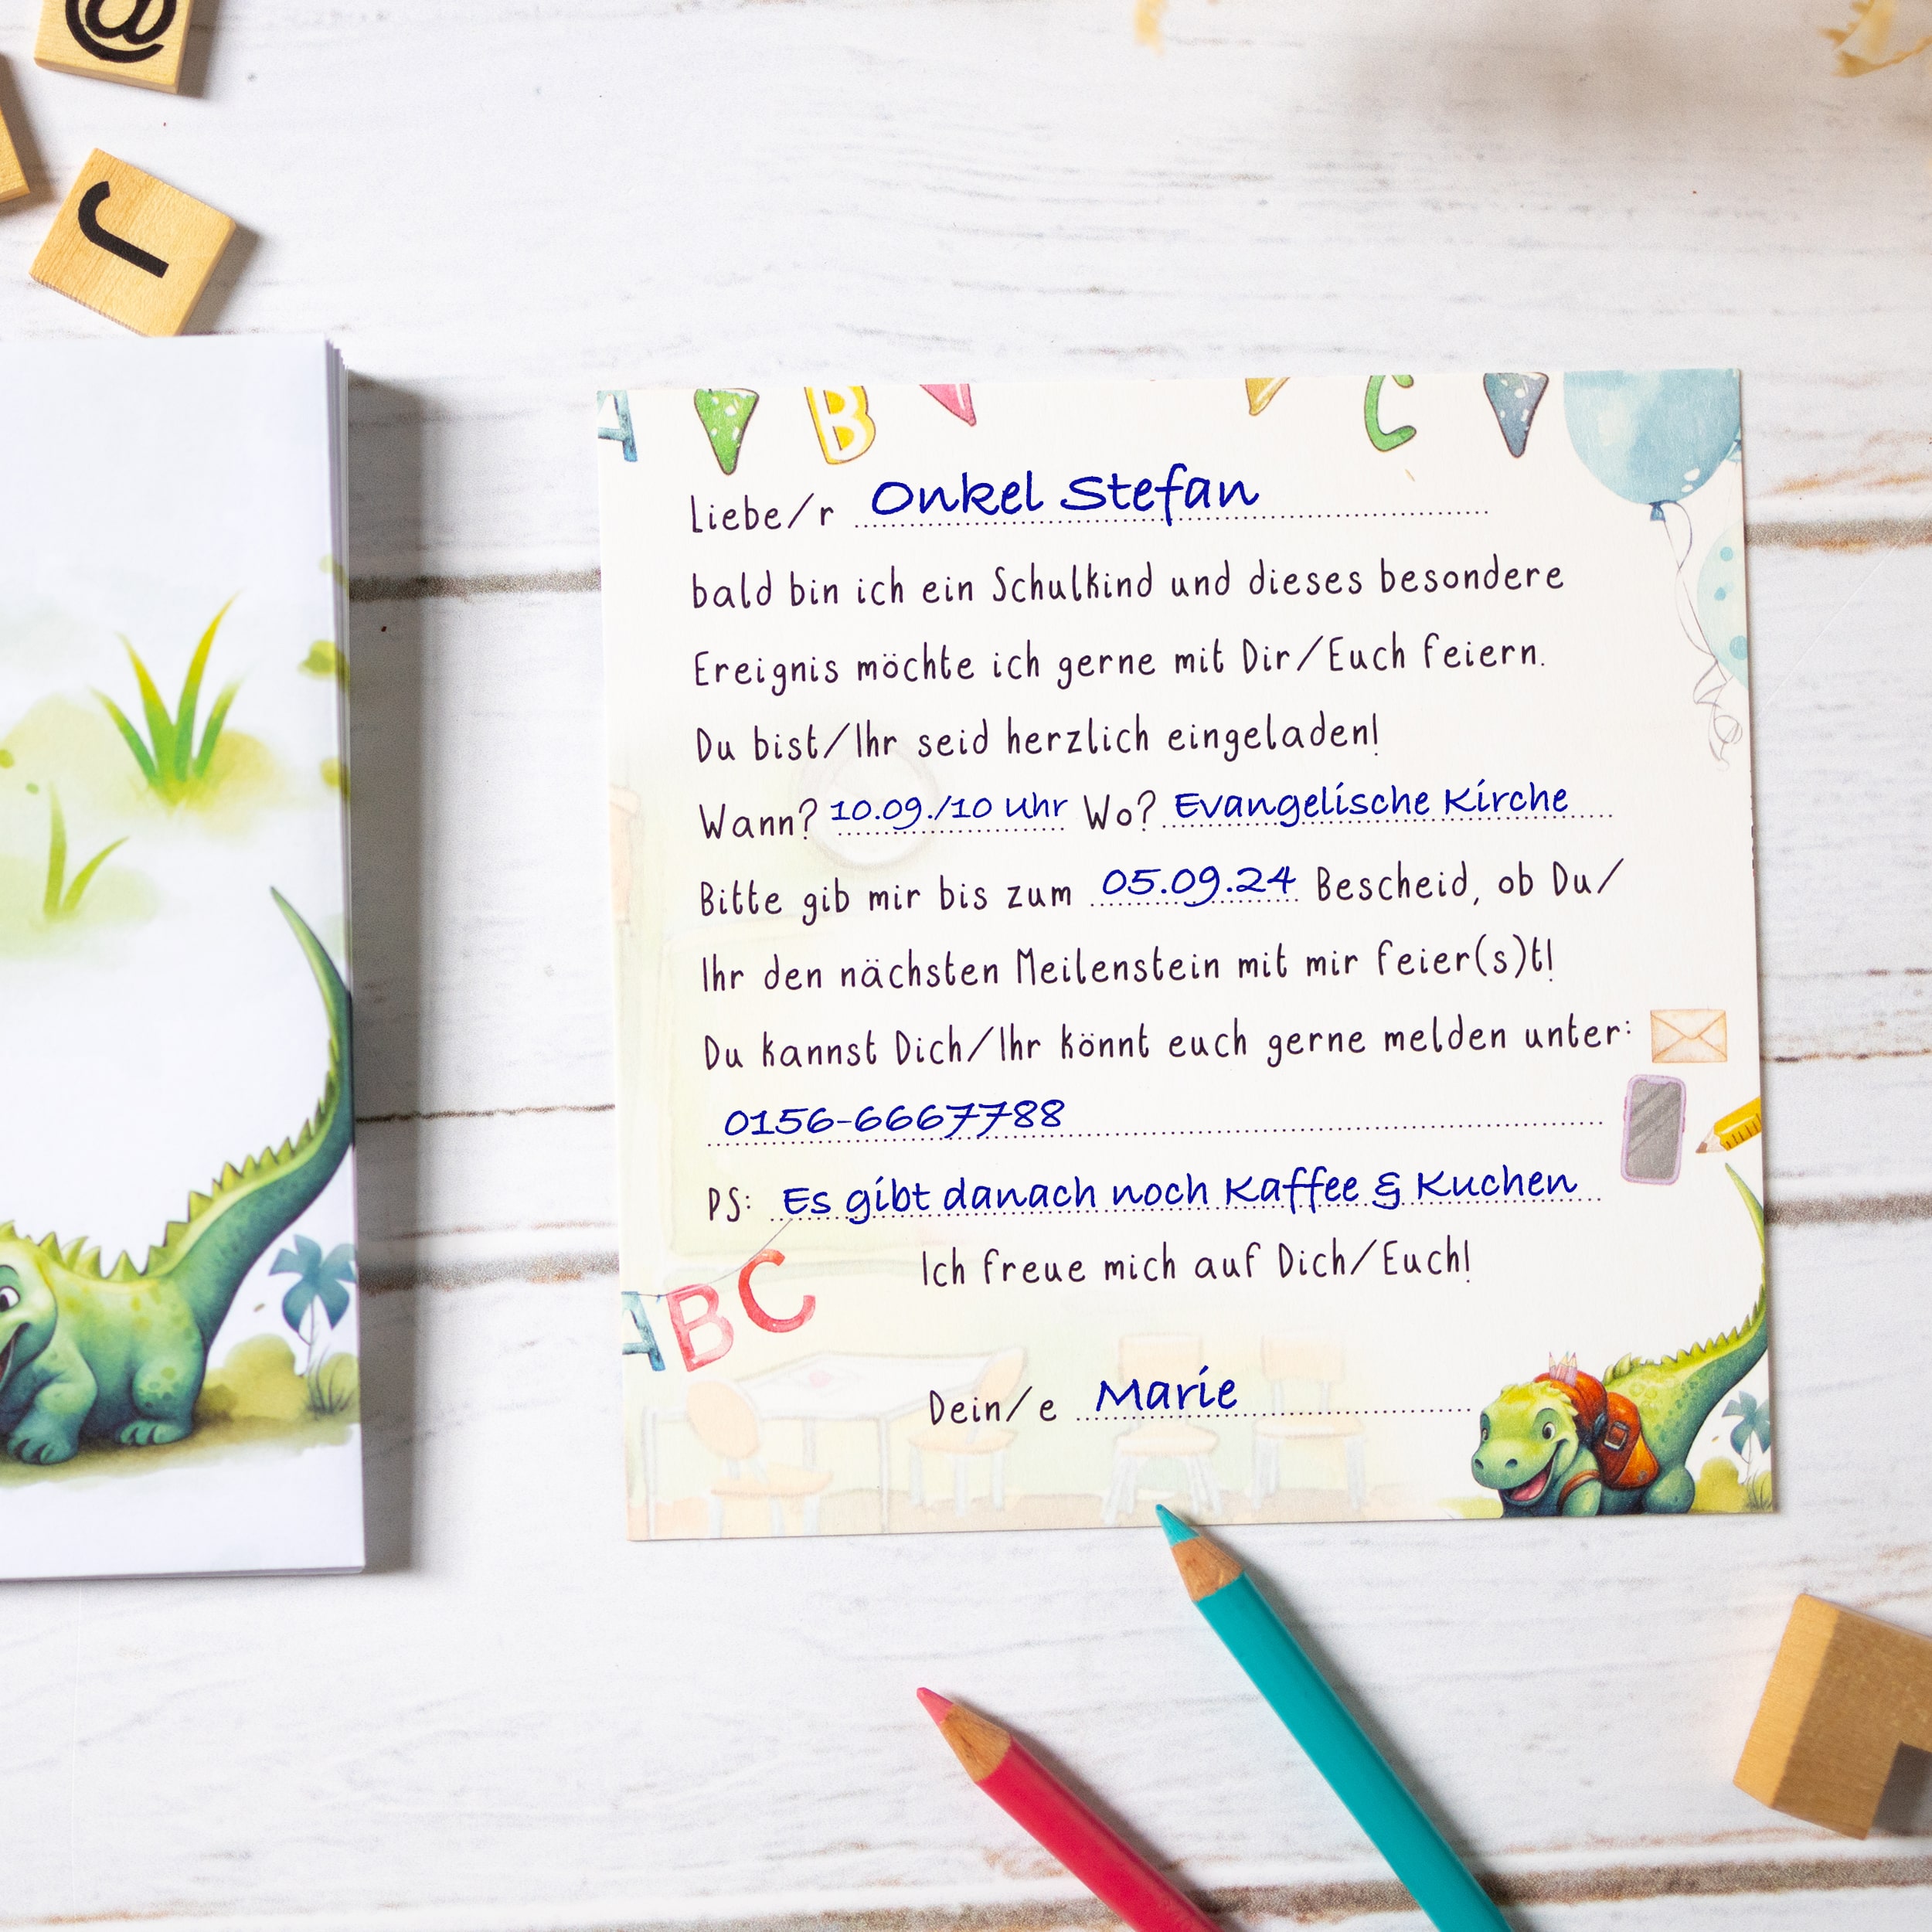 @
J
A B C
Liebe/r Onkel Stefan
bald bin ich ein Schulkind und dieses besondere
Ereignis möchte ich gerne mit Dir/Euch feiern.
Du bist/Ihr seid herzlich eingeladen!
Wann? 10.09./10 Uhr Wo? Evangelische Kirche
Bitte gib mir bis zum 05.09.24 Bescheid, ob Du/
Ihr den nächsten Meilenstein mit mir feier(s)t!
Du kannst Dich/Ihr könnt euch gerne melden unter:
0156-6667788
PS: Es gibt danach noch Kaffee & Kuchen
Ich freue mich auf Dich/Euch!
ABC
Dein/e Marie